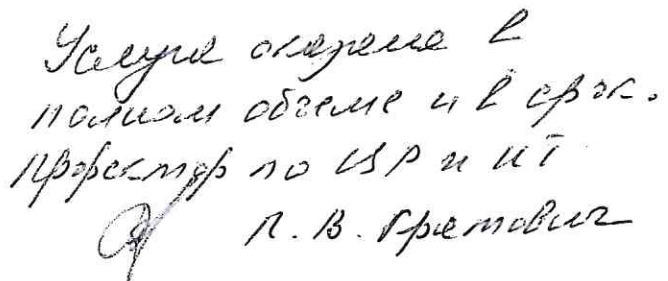 Услуга оказана в
полном объеме и в срок.
Проректор по ЦР и ИТ
Л. В.